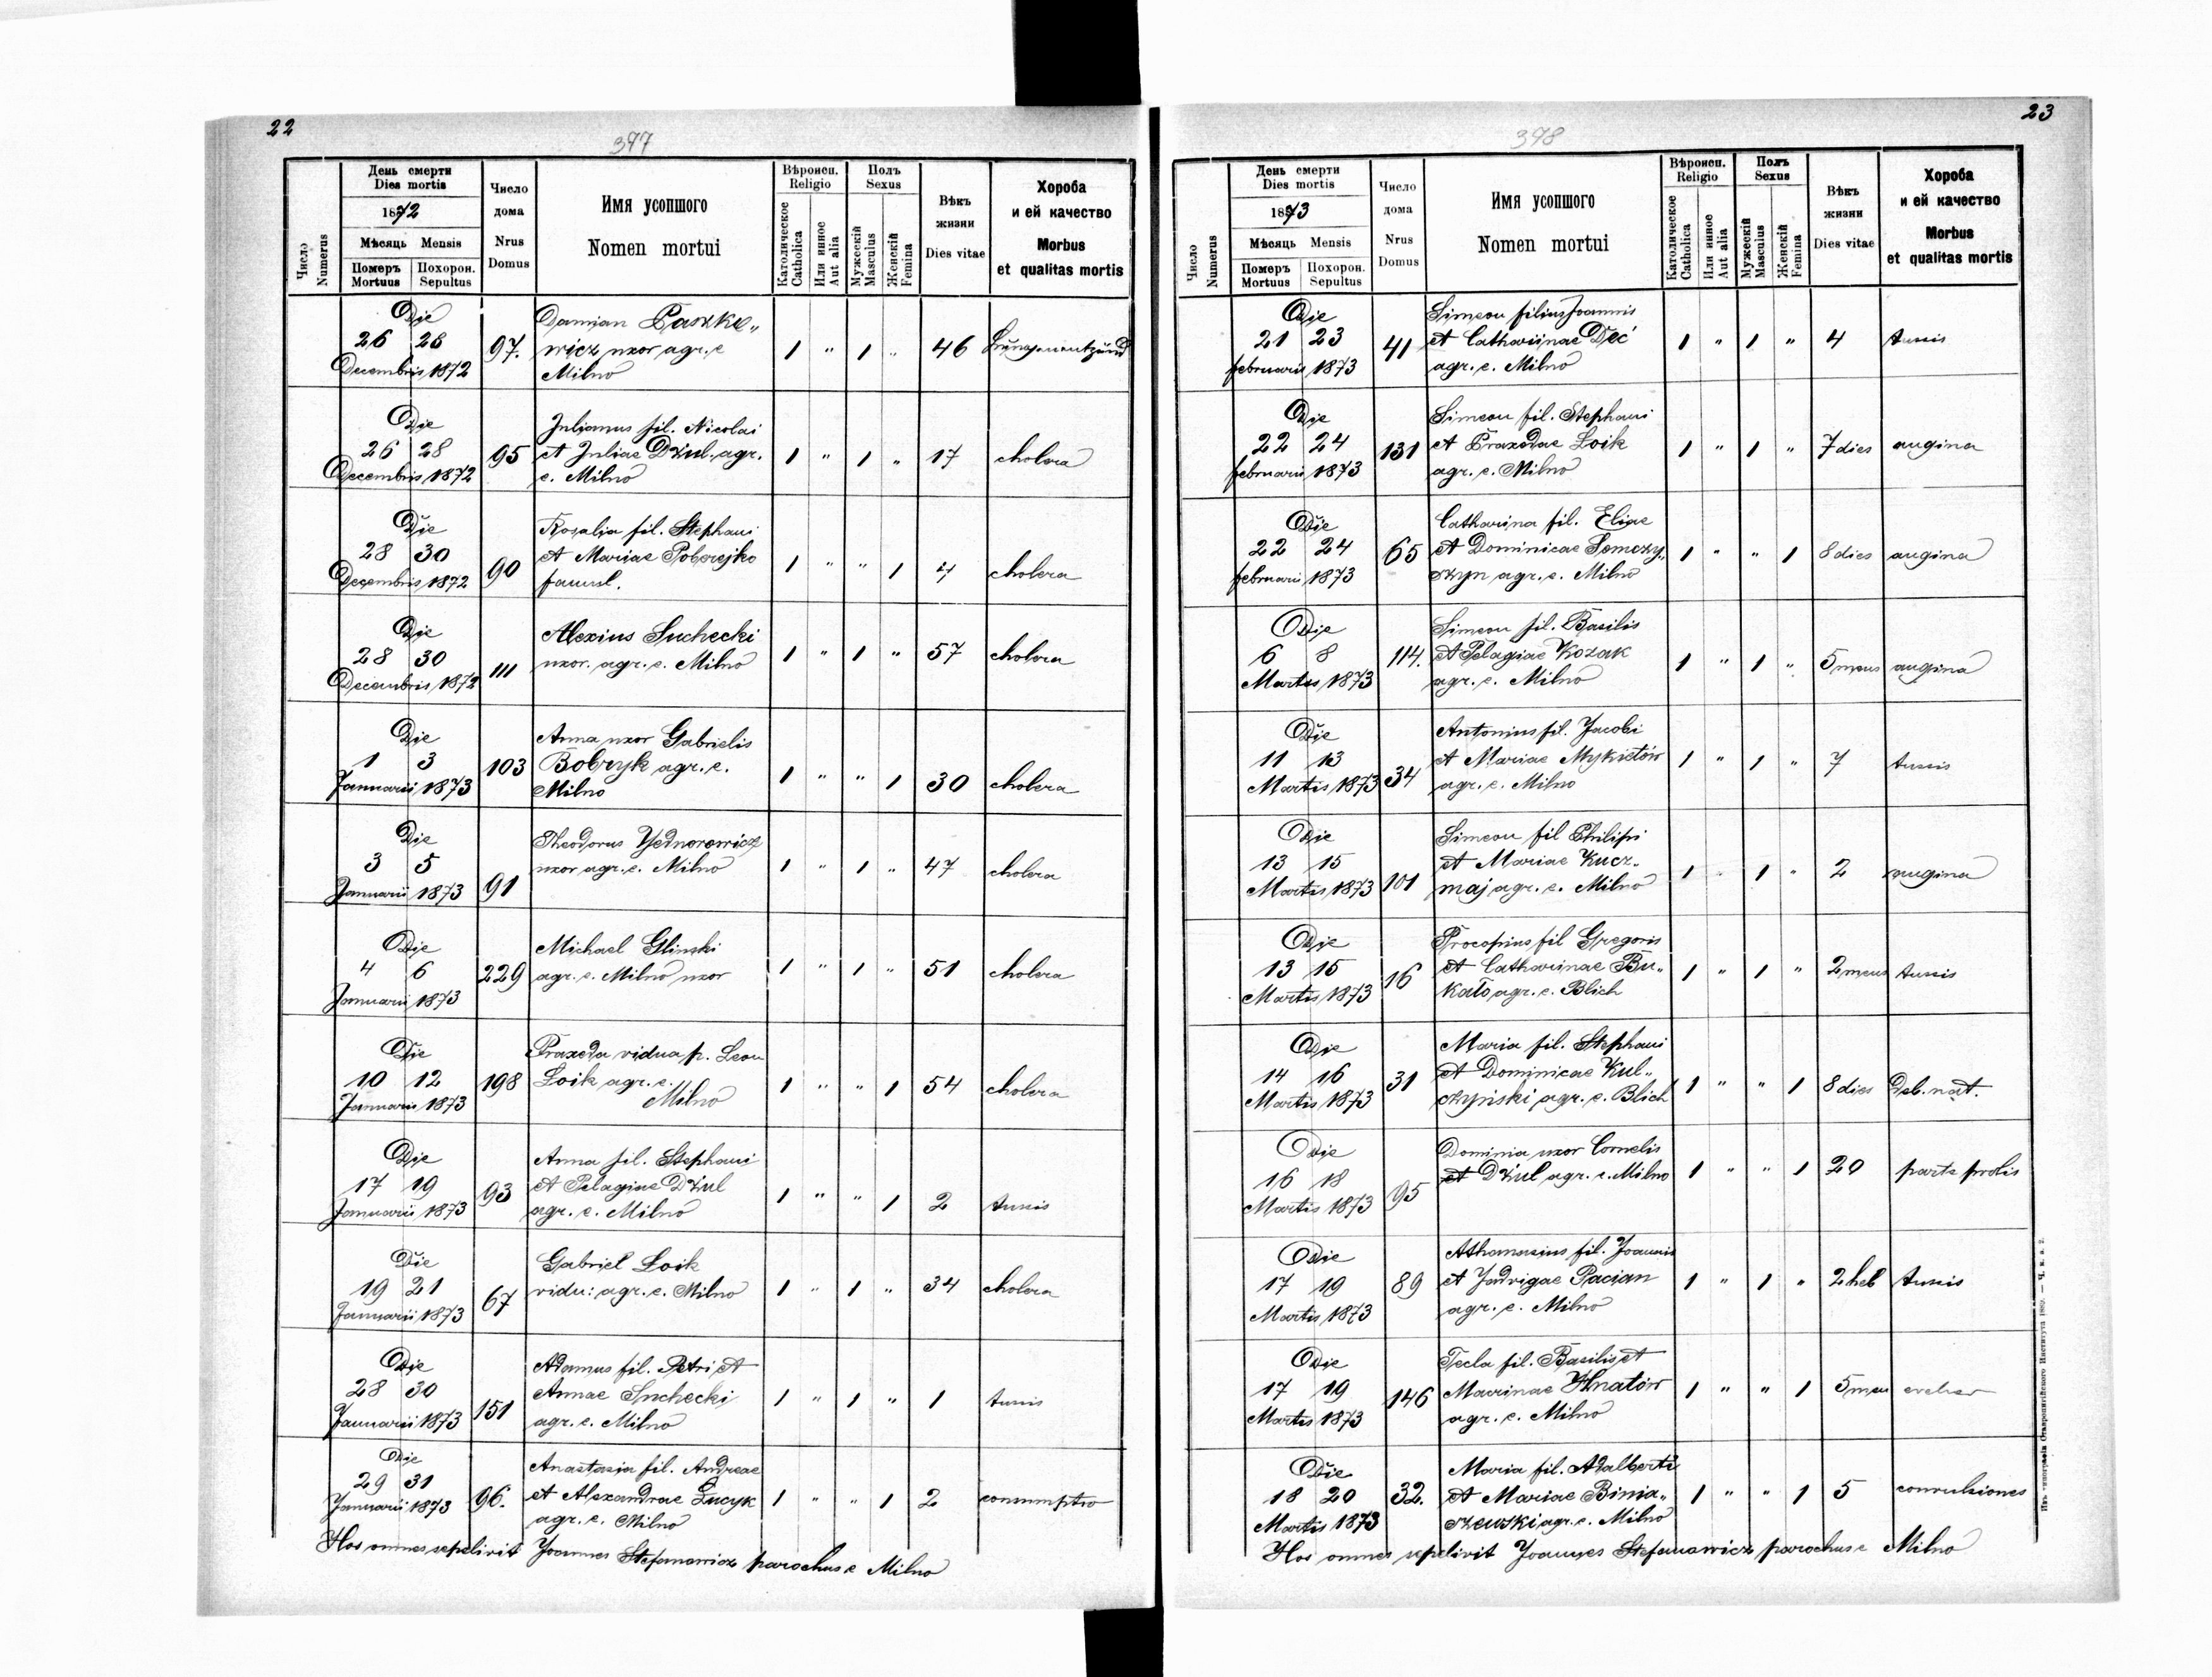 22
397
День смерти
Dies mortis
1872
Мѣсяць Mensis
Померъ Похорон.
Mortuus Sepultus
Число
Numerus
Число
дома
Nrus
Domus
Имя усопшого
Nomen mortui
Вѣроисп.
Religio
Католическое
Catholica
Или инное
Aut alia
Полъ
Sexus
Мужескій
Masculus
Женскій
Femina
Вѣкъ
жизни
Dies vitae
Хороба
и ей качество
Morbus
et qualitas mortis
Die
26 28
Decembris 1872
97.
Damjan Paszke„
wicz uxor agr. e
Milno
1 " 1 " 46
Die
26 28
Decembris 1872
95
Julianus fil. Nicolai
et Juliae Dżul. agr.
e. Milno
1 " 1 " 17 cholera
Die
28 30
Decembris 1872
90
Rosalia fil. Stephani
et Mariae Poberejko
famul.
1 " " 1 4 cholera
Die
28 30
Decembris 1872
111
Alexius Suchecki
uxor. agr. e. Milno
1 " 1 " 57 cholera
Die
1 3
Januarii 1873
103
Anna uxor Gabrielis
Bobryk agr. e.
Milno
1 " " 1 30 cholera
Die
3 5
Januarii 1873
91
Theodorus Yednorowicz
uxor agr. e. Milno
1 " 1 " 47 cholera
Die
4 6
Januarii 1873
229
Michael Glinski
agr. e. Milno uxor
1 " 1 " 51 cholera
Die
10 12
Januarii 1873
198
Praxeda vidua p. Leon
Loik agr. e.
Milno
1 " " 1 54 cholera
Die
17 19
Januarii 1873
93
Anna fil. Stephani
et Pelagiae Dżul
agr. e. Milno
1 " " 1 2 tussis
Die
19 21
Januarii 1873
67
Gabriel Loik
vidu: agr. e. Milno
1 " 1 " 34 cholera
Die
28 30
Januarii 1873
151
Adamus fil. Petri et
Annae Suchecki
agr. e. Milno
1 " 1 " 1 tussis
Die
29 31
Januarii 1873
96.
Anastasia fil. Andreae
et Alexandrae Łucyk
agr. e. Milno
1 " " 1 2 consumptio
Hos omnes sepelivit Joannes Stefanowicz parochus e Milno
23
398
День смерти
Dies mortis
1873
Мѣсяць Mensis
Померъ Похорон.
Mortuus Sepultus
Число
Numerus
Число
дома
Nrus
Domus
Имя усопшого
Nomen mortui
Вѣроисп.
Religio
Католическое
Catholica
Или инное
Aut alia
Полъ
Sexus
Мужескій
Masculus
Женскій
Femina
Вѣкъ
жизни
Dies vitae
Хороба
и ей качество
Morbus
et qualitas mortis
Die
21 23
februarii 1873
41
Simeon filius Joannis
et Catharinae Deć
agr. e. Milno
1 " 1 " 4 tussis
Die
22 24
februarii 1873
131
Simeon fil. Stephani
et Praxedae Loik
agr. e. Milno
1 " 1 " 7 dies angina
Die
22 24
februarii 1873
65
Catharina fil. Eliae
et Dominicae Semczy„
szyn agr. e. Milno
1 " " 1 8 dies angina
Die
6 8
Martis 1873
114.
Simeon fil. Basilis
et Pelagiae Kozak
agr. e. Milno
1 " 1 " 5 mens angina
Die
11 13
Martis 1873
34
Antonius fil. Jacobi
et Mariae Mykietów
agr. e. Milno
1 " 1 " 7 tussis
Die
13 15
Martis 1873
101
Simeon fil Philipi
et Mariae Kucz„
maj agr. e. Milno
1 " 1 " 2 angina
Die
13 15
Martis 1873
16
Procopius fil Gregoris
et Catharinae Bu„
kało agr. e. Blich
1 " 1 " 2 mens tussis
Die
14 16
Martis 1873
31
Maria fil. Stephani
et Dominicae Kul„
czyński agr. e. Blich
1 " " 1 8 dies Deb. nat.
Die
16 18
Martis 1873
95
Dominia uxor Cornelis
et Dżul agr. e. Milno
1 " " 1 20 parte prolis
Die
17 19
Martis 1873
89
Athanasius fil. Joannis
et Jadvigae Pacian
agr. e. Milno
1 " 1 " 2 heb tussis
Die
17 19
Martis 1873
146
Tecla fil. Basilis et
Marinae Hnatów
agr. e. Milno
1 " " 1 5 men
Die
18 20
Martis 1873
32.
Maria fil. Adalberti
et Mariae Binia„
szewski agr. e. Milno
1 " " 1 5 convulsiones
Hos omnes sepelivit Joannes Stefanowicz parochus e Milno
Изъ типографіи Ставропигійского Института 1889. — Ч. в. а. 2.